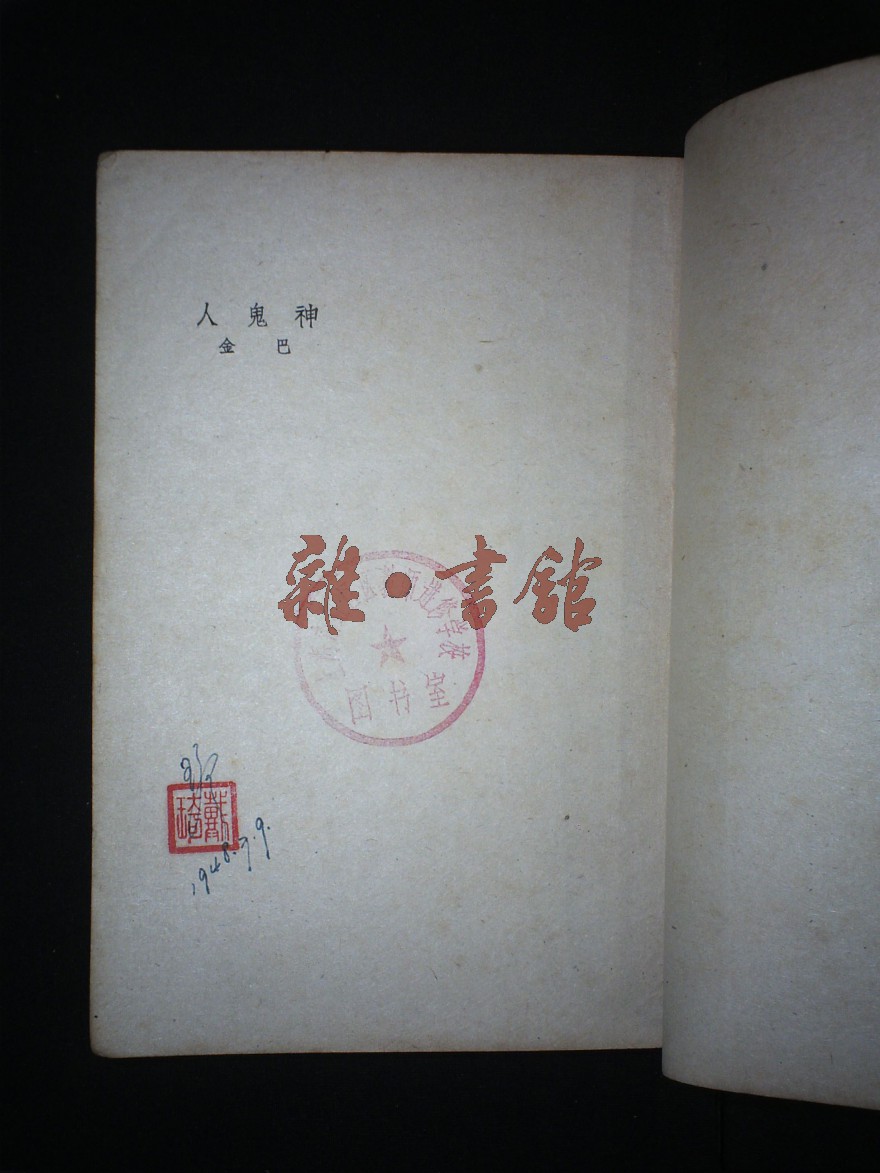 神鬼人
巴金
雜·書館
学校
图书室
戴琦
1948.7.9.